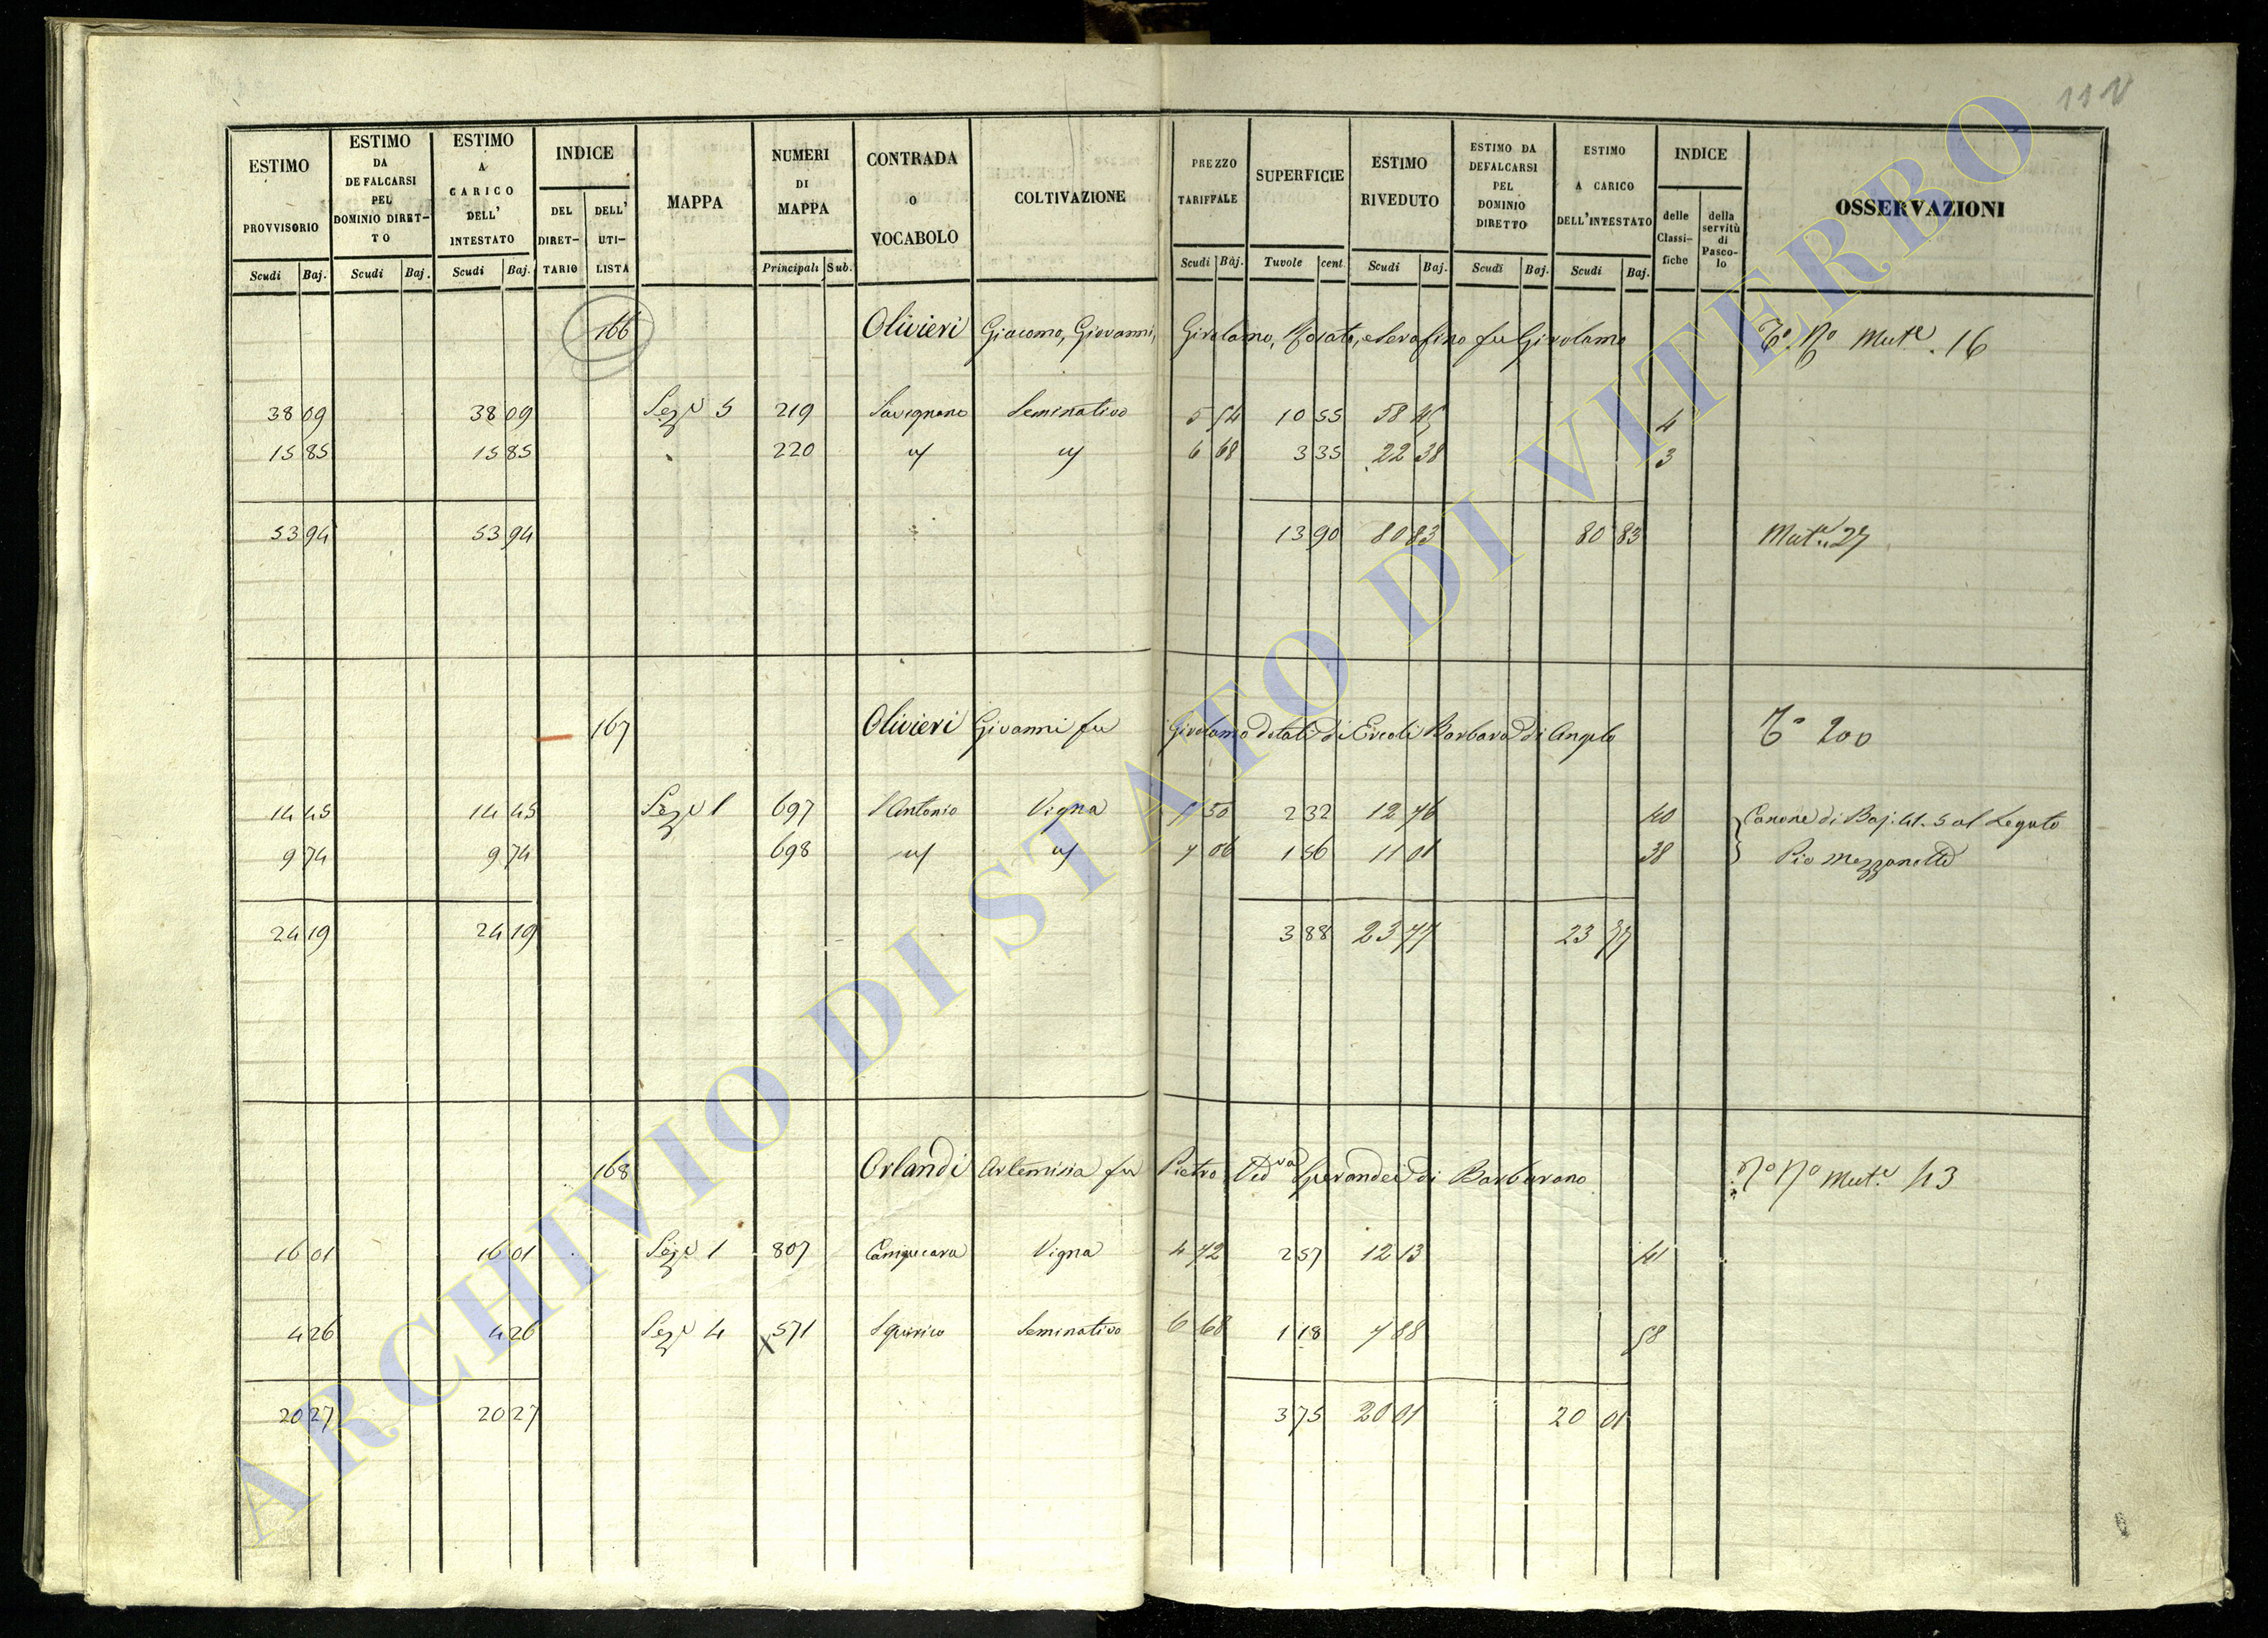 112
ESTIMO PROVVISORIO Scudi Baj.
ESTIMO DA DEFALCARSI PEL DOMINIO DIRETTO Scudi Baj.
ESTIMO A CARICO DELL' INTESTATO Scudi Baj.
INDICE DEL DIRETTARIO DELL' UTILISTA
MAPPA
NUMERI DI MAPPA Principali Sub.
CONTRADA O VOCABOLO
COLTIVAZIONE
PREZZO TARIFFALE Scudi Baj.
SUPERFICIE Tavole cent.
ESTIMO RIVEDUTO Scudi Baj.
ESTIMO DA DEFALCARSI PEL DOMINIO DIRETTO Scudi Baj.
ESTIMO A CARICO DELL'INTESTATO Scudi Baj.
INDICE delle Classifiche della servitù di Pascolo
OSSERVAZIONI
166 Olivieri Giacomo, Giovanni, Girolamo, Rosato, e Serafino fu Girolamo Mut.e 16
38 09 38 09 Sez.e 5 219 Savignano Seminativo 5 54 10 55 58 45 4
15 85 15 85 220 " " 6 68 3 35 22 38 3
53 94 53 94 13 90 80 83 80 83 Mut.e 27
167 Olivieri Giovanni fu Girolamo dotati di Ercoli Barbara di Angelo T.o 200
14 45 14 45 Sez.e 1 697 S Antonio Vigna 5 50 2 32 12 76 40 Canone di Baj. 41.5 al Legato
9 74 9 74 698 " " 7 06 1 56 11 01 38 Pio Mezzanetti
24 19 24 19 3 88 23 77 23 77
168 Orlandi Artemisia fu Pietro Ved.va Sperandei di Barbarano Mut.e 43
16 01 16 01 Sez.e 1 807 Vigna 4 72 2 57 12 13 41
4 26 4 26 Sez.e 4 571 S Quirico Seminativo 6 68 1 18 7 88 58
20 27 20 27 3 75 20 01 20 01
ARCHIVIO DI STATO DI VITERBO